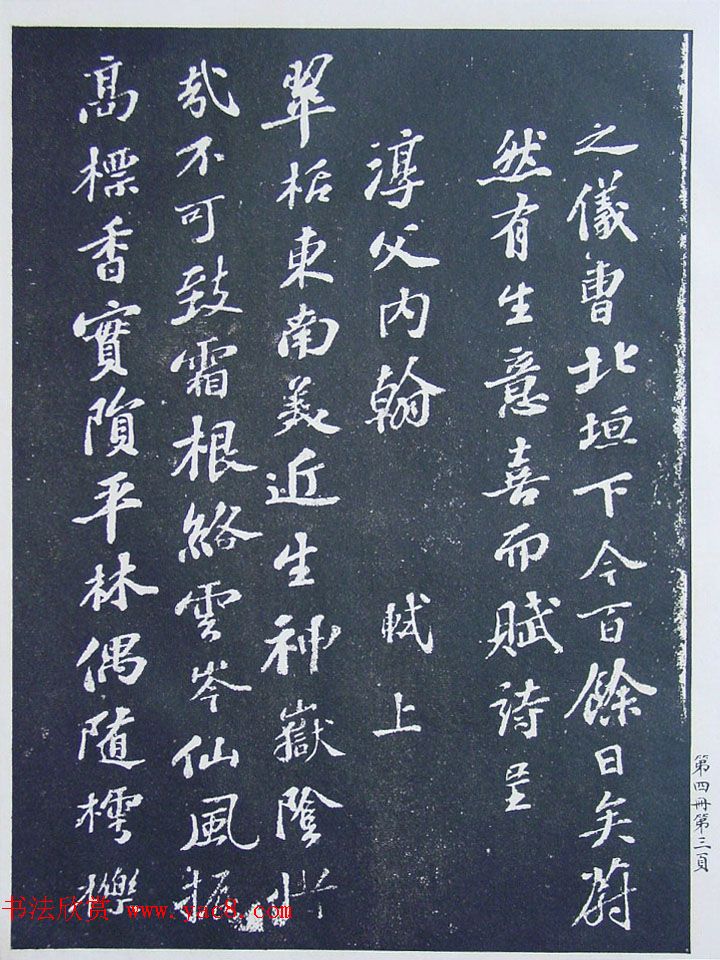 之儀曹北垣下今百餘日矣蔚
然有生意喜而賦詩呈
淳父内翰 軾上
翠栝東南美近生神嶽陰
哉不可致霜根絡雲岑仙風振
高標香實隕平林偶隨樗櫟
第四冊第三頁
书法欣赏 www.yac8.com